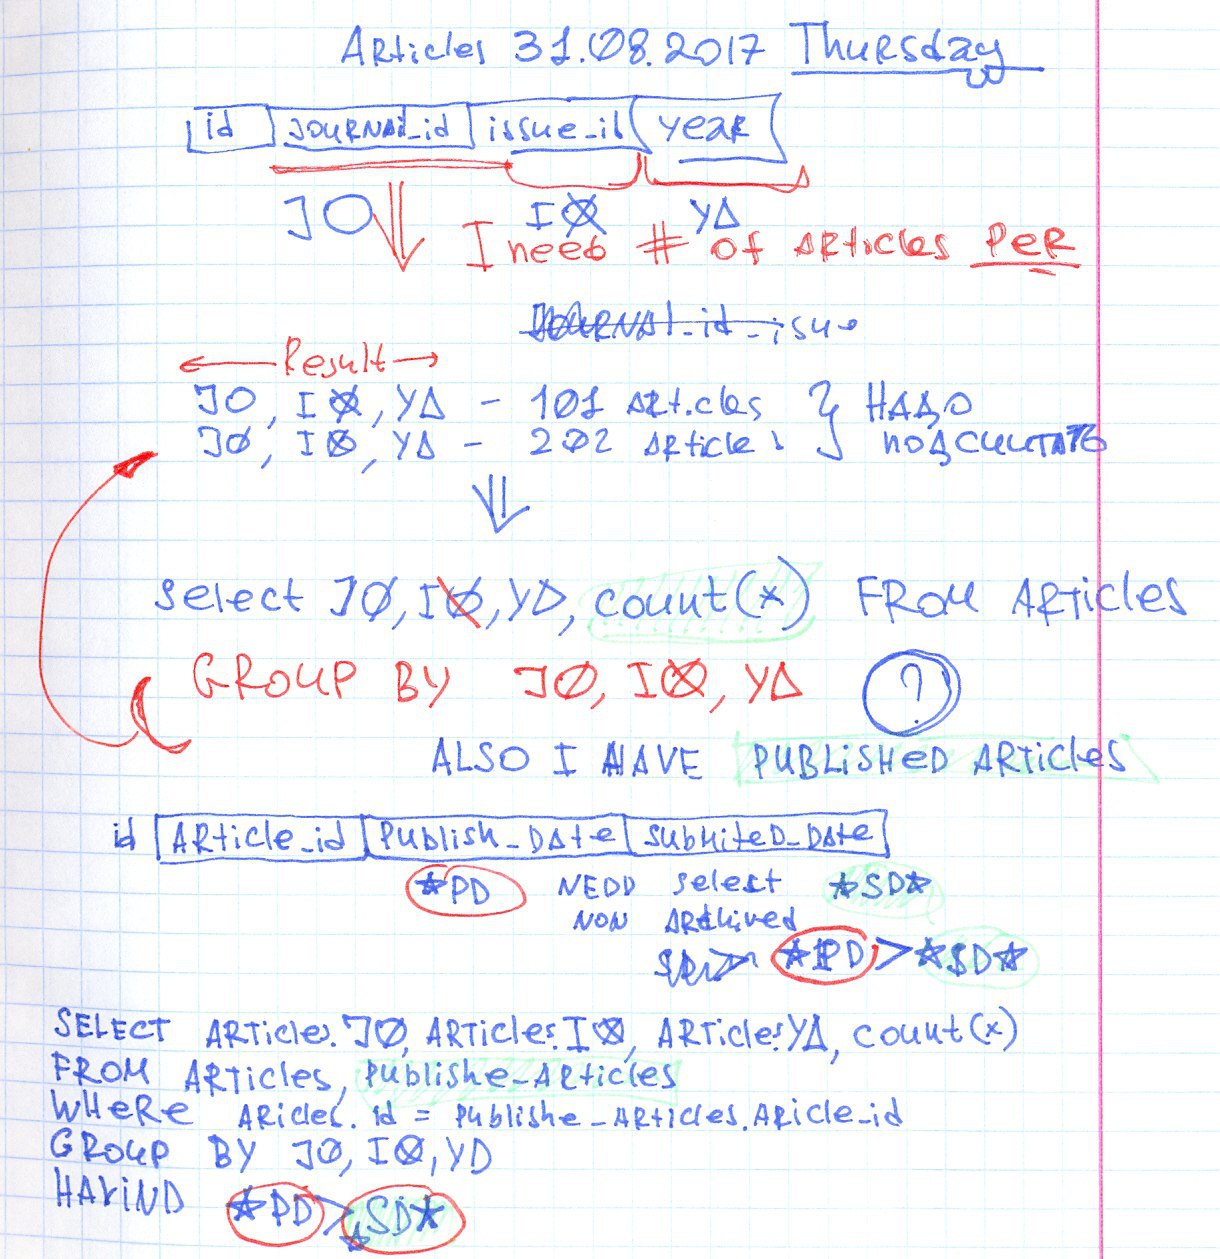 Articles 31.08.2017 Thursday
id JOURNAL_id issue_id year
JO IØ YΔ
I need # of Articles PER
JOURNAl_id_issue
Result
JO, IØ, YΔ - 101 ARticles } НАДО
JØ, IØ, YΔ - 202 ARticles } ПОДСЧИТАТЬ
Select JØ, IØ, YD, count(*) FROM ARTicles
GROUP BY JØ, IØ, YΔ ?
ALSO I HAVE PUBLISHED ARTicles
id ARticle_id Publish_DAte SubmiteD_DAte
*PD NEDD Select *SD*
NON ARchived
*PD > *SD*
SELECT ARTicles.JØ, ARTicles.IØ, ARTicles.YΔ, count(*)
FROM ARTicles, Publishe_ARticles
WHeRe ARicles.id = Publishe_ARTicles.ARicle_id
GROUP BY JØ, IØ, YD
HAVIND *PD > *SD*